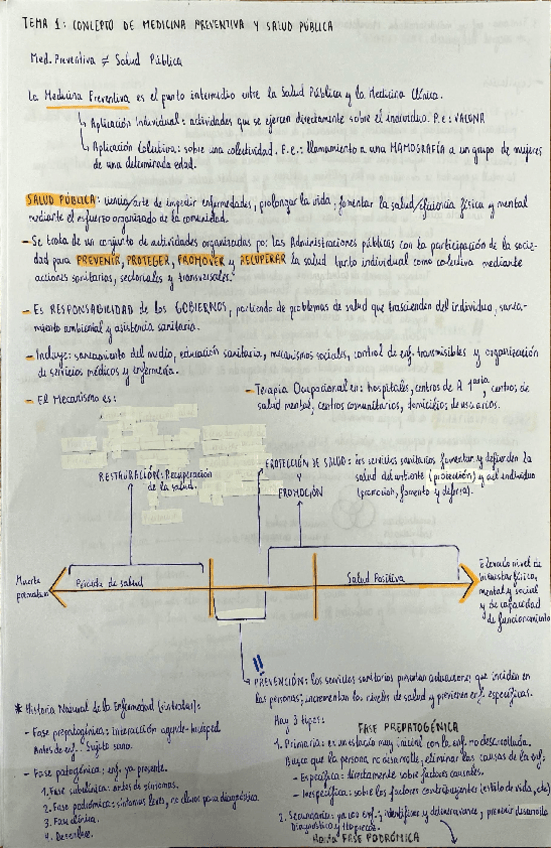 TEMA 1: CONCEPTO DE MEDICINA PREVENTIVA Y SALUD PÚBLICA
Med. Preventiva ≠ Salud Pública
La Medicina Preventiva es el punto intermedio entre la Salud Pública y la Medicina Clínica.
Aplicación Individual: actividades que se ejercen directamente sobre el individuo. P.e.: VACUNA
Aplicación Colectiva: sobre una colectividad. P.e.: llamamiento a una MAMOGRAFÍA a un grupo de mujeres
de una determinada edad.
SALUD PÚBLICA: ciencia/arte de impedir enfermedades, prolongar la vida, fomentar la salud/eficiencia física y mental
mediante el esfuerzo organizado de la comunidad.
- Se trata de un conjunto de actividades organizadas por las Administraciones públicas con la participación de la socie-
dad para PREVENIR, PROTEGER, PROMOVER y RECUPERAR la salud tanto individual como colectiva mediante
acciones sanitarias, sectoriales y transversales."
- Es RESPONSABILIDAD de los GOBIERNOS, partiendo de problemas de salud que trascienden del individuo, sanea-
miento ambiental y asistencia sanitaria.
- Incluye: saneamiento del medio, educación sanitaria, mecanismos sociales, control de enf. transmisibles y organización
de servicios médicos y enfermería.
- El Mecanismo es:
- Terapia Ocupacional en: hospitales, centros de A 1aria, centros de
salud mental, centros comunitarios, domicilios de usuarios.
RESTAURACIÓN: Recuperación
de la salud.
PROTECCIÓN DE SALUD: los servicios sanitarios fomentan y defienden la
Y
salud del ambiente (protección) y del individuo
PROMOCIÓN
(promoción, fomento y defensa).
Muerte
prematura
Pérdida de salud
Salud Positiva
Elevado nivel de
bienestar físico,
mental y social
y de capacidad
de funcionamiento
!!
PREVENCIÓN: los servicios sanitarios prestan actuaciones que inciden en
las personas; incrementan los niveles de salud y previenen enf. específicas.
* Historia Natural de la Enfermedad (sin tratar):
- Fase prepatogénica: interacción agente-huésped
Antes de enf. Sujeto sano.
- Fase patogénica: enf. ya presente.
1. Fase subclínica: antes de síntomas.
2. Fase podrómica: síntomas leves, no claves para diagnóstico.
3. Fase clínica.
4. Desenlace.
Hay 3 tipos:
FASE PREPATOGÉNICA
1. Primaria: es un estadio muy inicial con la enf. no desarrollada.
Busca que la persona no desarrolle, eliminar las causas de la enf:
- Específica: directamente sobre factores causales.
- Inespecífica: sobre los factores contribuyentes (estilo de vida, etc)
2. Secundaria: ya con enf; identificar y detectar antes, prevenir desarrollo
Diagnóstico y
Hasta FASE PODRÓMICA